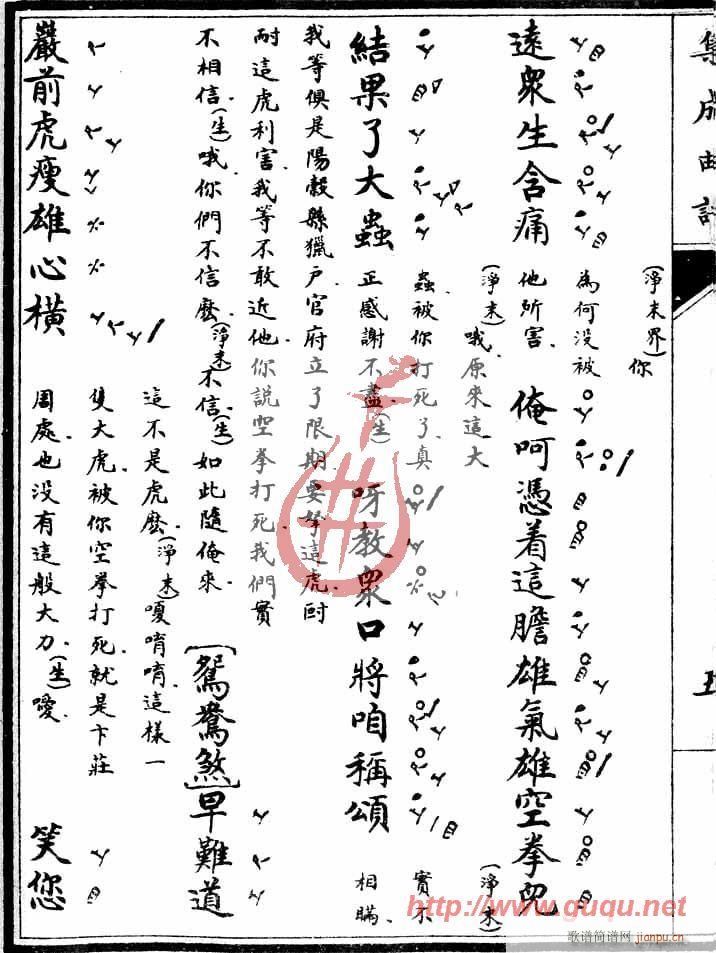 集成曲譜
遠衆生含痛
(淨末界)你
為何没被
他所害
俺呵憑着這膽雄氣雄空拳兒
結果了大蟲
(淨末)哦原來這大
蟲被你打死了真
正感謝不盡(生)
呀教衆口將咱稱頌
(淨末)
實不
相瞞
我等俱是陽穀縣獵户官府立了限期要拏這虎尀
耐這虎利害我等不敢近他你說空拳打死我們實
不相信(生)哦你們不信麼(淨末)不信(生)如此隨俺來
[鴛鴦煞]早難道
巖前虎瘦雄心橫
這不是虎麼(淨末)嗄唷唷這樣一
隻大虎被你空拳打死就是卞莊
周處也没有這般大力(生)噯
笑您
http://www.guqu.net
歌谱简谱网
jianpu.cn